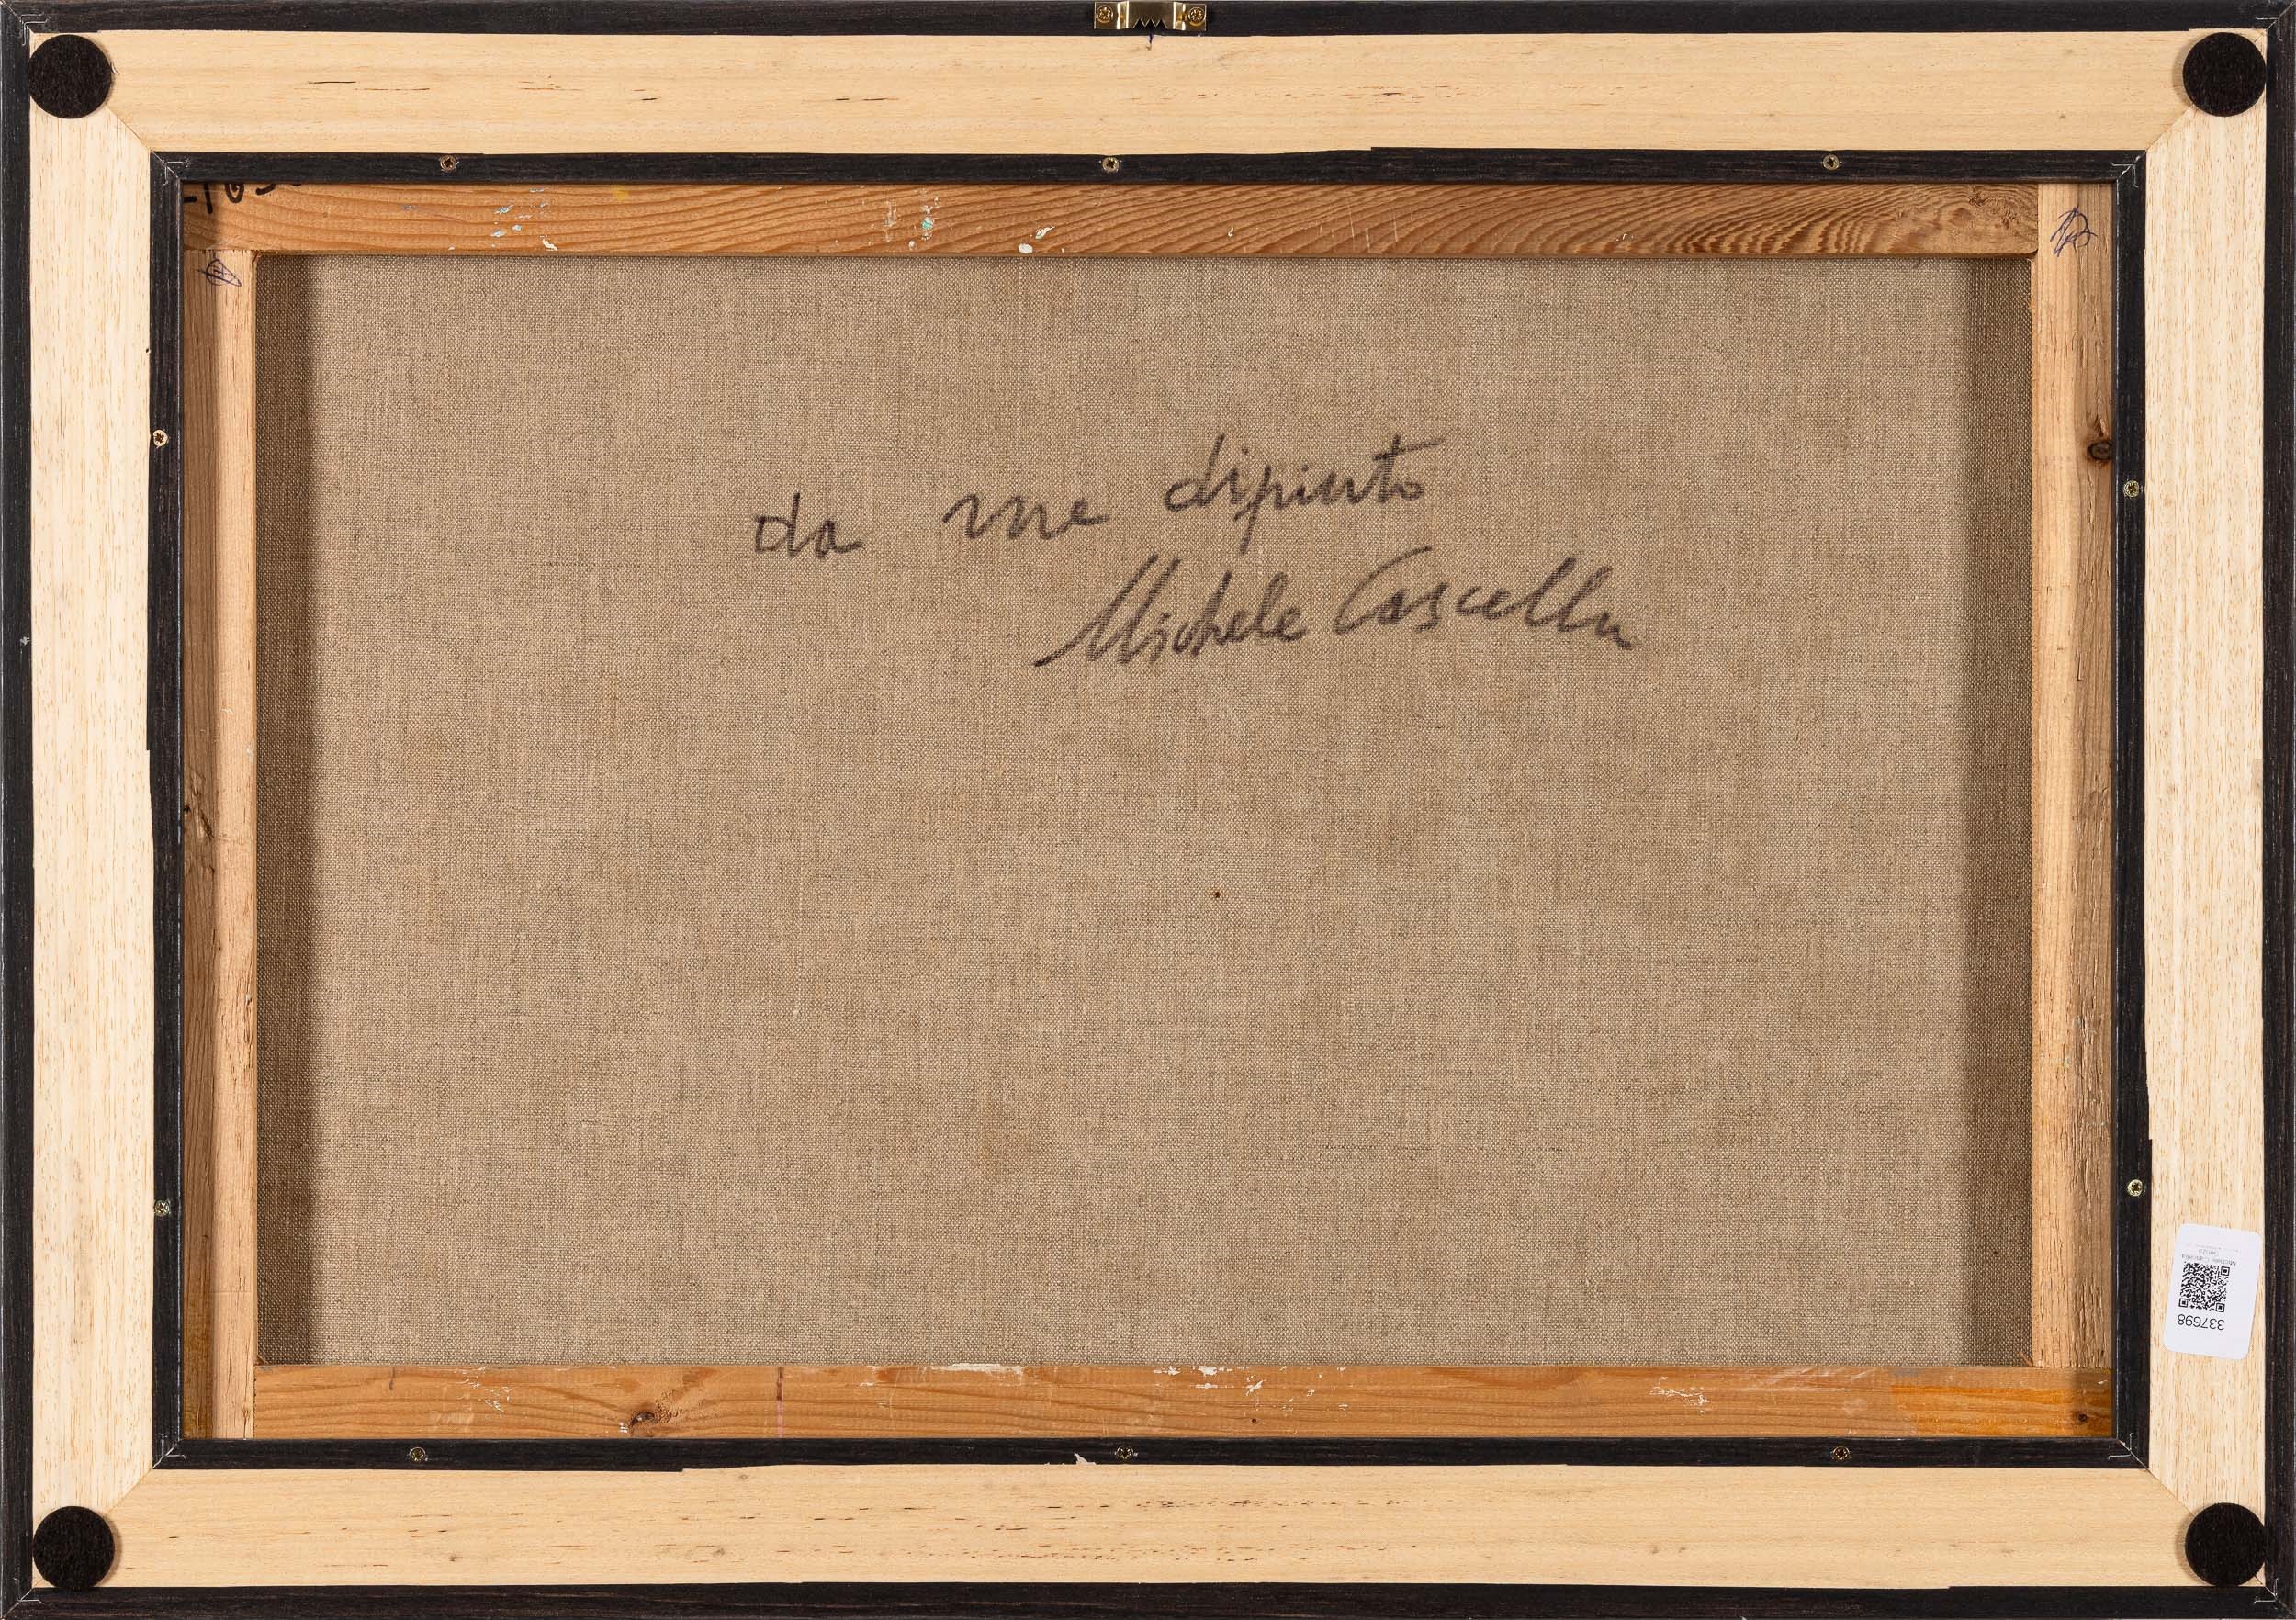 da me dipinto
Michele Cascella
337698